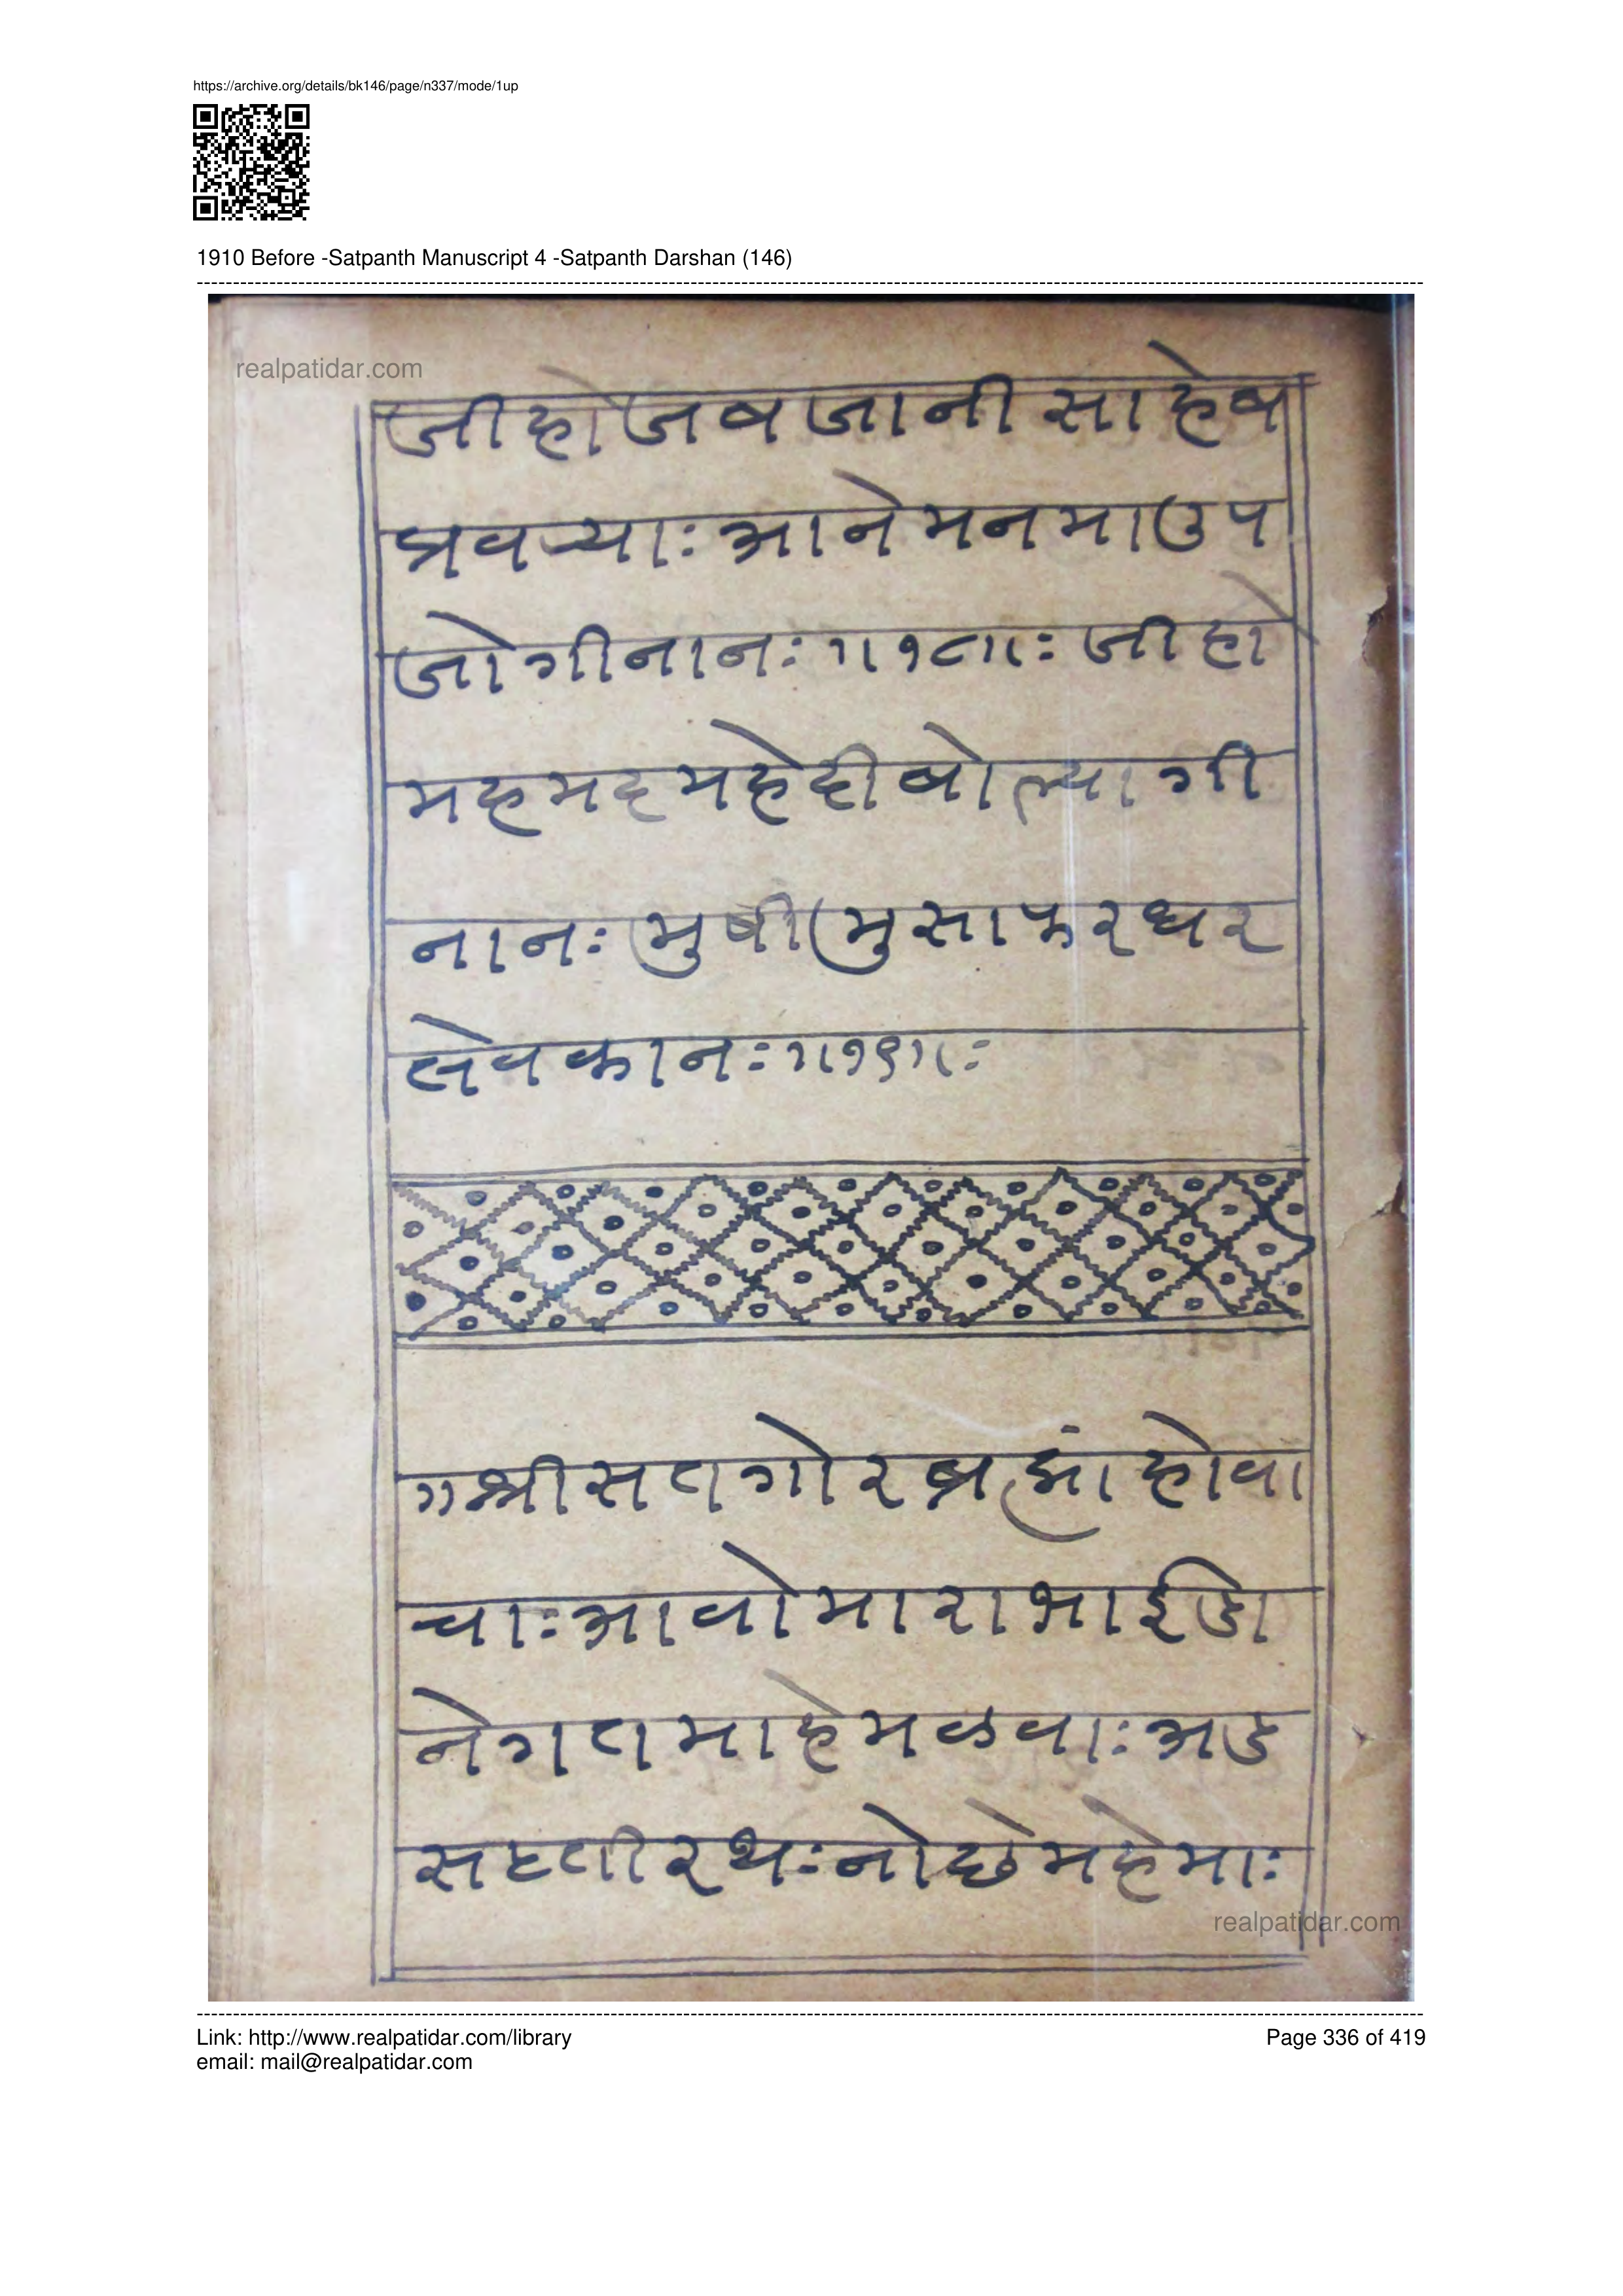 https://archive.org/details/bk146/page/n337/mode/1up
1910 Before -Satpanth Manuscript 4 -Satpanth Darshan (146)
realpatidar.com
जीहोजबजानीसाहेब
प्रवर्‍याःआनेमनमाउप
जोगीनानः॥१८॥ः जीहो
महमदमहेदीबोल्यागी
नानःमुषीमुसाफरघर
सेवकानः॥१९॥ः
॥श्रीसतगोरब्रह्मांहोवा
चाःआवोमाराभाईडा
नेगतमाहेमळवाःअड
सठतीरथःनोछेमहेमाः
realpatidar.com
Link: http://www.realpatidar.com/library
Page 336 of 419
email: mail@realpatidar.com